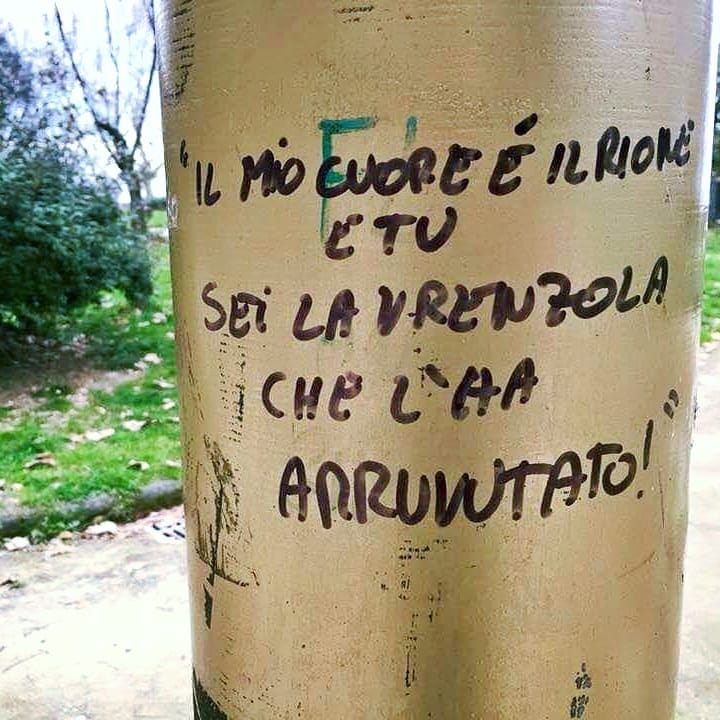 "IL MIO CUORE É IL RIONE
E TU
SEI LA VRENZOLA
CHE L'HA
ARRUVUTATO!"